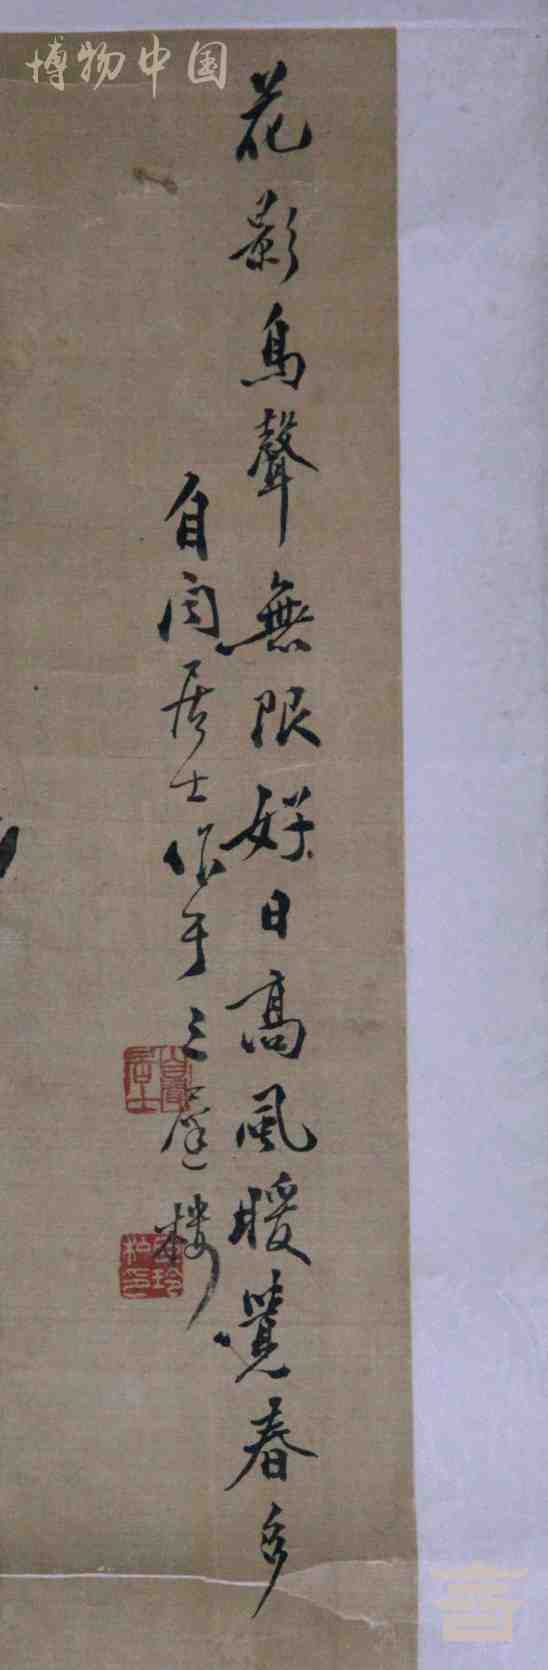 博物中国
花影鳥聲無限好日高風暖覺春多
自閑居士作于三層樓
自閑居士